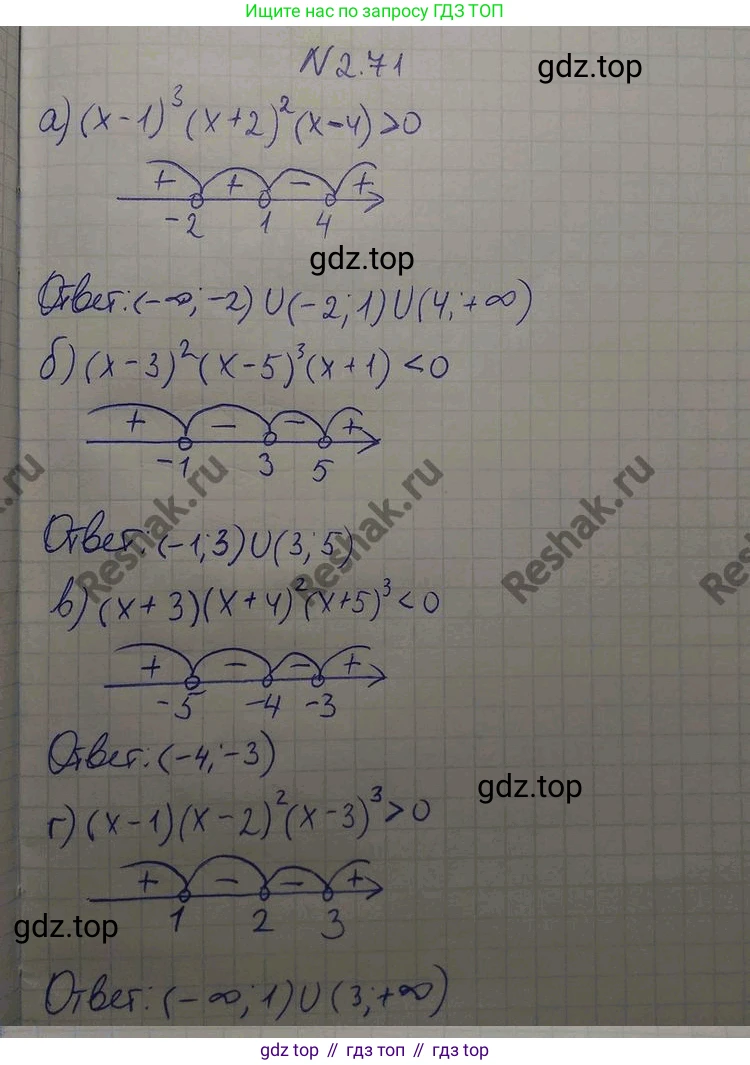 Ищите нас по запросу ГДЗ ТОП
N 2.71
gdz.top
а) (x-1)³(x+2)²(x-4)>0
+ + - +
-2 1 4
gdz.top
Ответ: (-∞; -2) U (-2; 1) U (4; +∞)
б) (x-3)²(x-5)³(x+1)<0
+ - - +
-1 3 5
Reshak.ru Reshak.ru Reshak.ru
Ответ: (-1; 3) U (3; 5)
в) (x+3)(x+4)²(x+5)³<0
+ - - +
-5 -4 -3
Ответ: (-4; -3)
gdz.top
г) (x-1)(x-2)²(x-3)³>0
+ - - +
1 2 3
gdz.top
Ответ: (-∞; 1) U (3; +∞)
gdz top // гдз топ // gdz.top